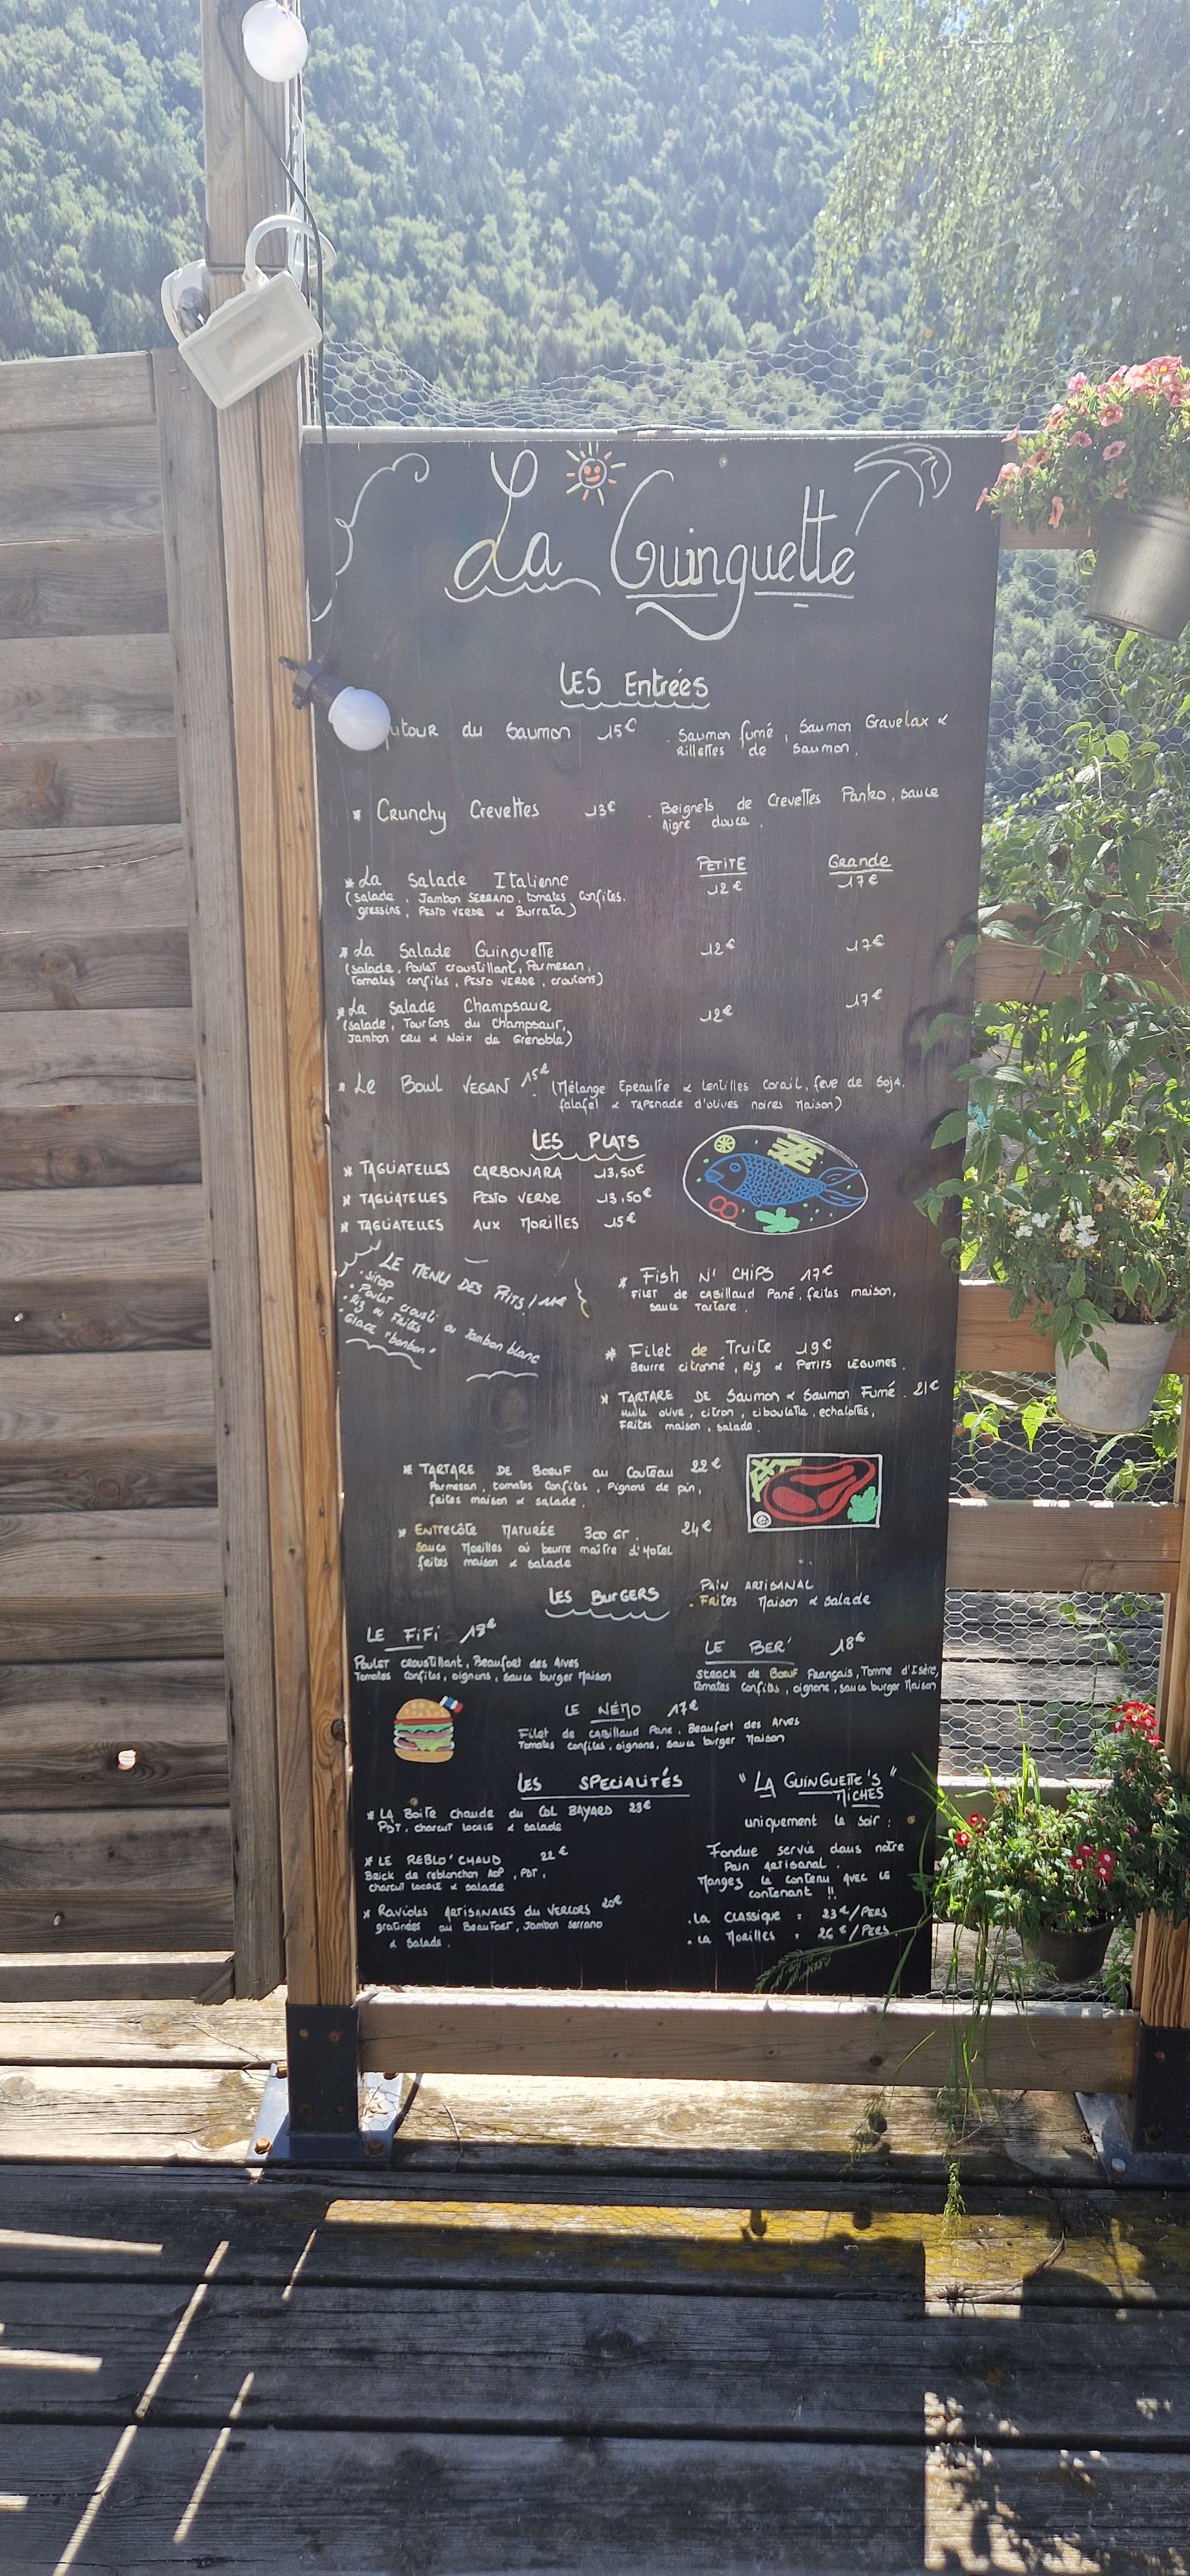 La Guinguette
LES Entrées
utour du Saumon 15€ - Saumon fumé, Saumon Gravelax &
Rillettes de Saumon.
* Crunchy Crevettes 13€ - Beignets de Crevettes Panko, sauce
Aigre douce.
PETITE Grande
* La Salade Italienne 12€ 17€
(Salade, Jambon SERRANO, tomates confites,
gressins, PESTO VERDE & Burrata)
* La Salade Guinguette 12€ 17€
(Salade, Poulet croustillant, Parmesan,
Tomates confites, PESTO VERDE, croutons)
* La Salade Champsaur 12€ 17€
(Salade, Tourtons du Champsaur,
Jambon CRU & Noix de Grenoble)
* Le Bowl VEGAN 15€ (Mélange Epeautre & Lentilles Corail, feve de Soja,
falafel & TAPENADE d'olives noires Maison)
LES PLATS
* TAGLIATELLES CARBONARA 13,50€
* TAGLIATELLES PESTO VERDE 13,50€
* TAGLIATELLES AUX MORILLES 15€
LE MENU DES P'TITS
. Sirop
. Poulet crousti ou Jambon blanc
. Riz ou Frites
. Glace "bonbon"
* Fish N' CHIPS 17€
FILET de CABillaud Pané, frites maison,
sauce Tartare.
* Filet de Truite 19€
Beurre citronné, Riz & PETITS LEGUMES.
* TARTARE DE Saumon & Saumon Fumé. 21€
Huile olive, citron, ciboulette, echalotes,
FRites maison, salade.
* TARTARE DE BOEUF au Couteau 22€
Parmesan, tomates Confites, Pignons de pin,
frites maison & salade.
* ENTRecôte MATURÉE 300 Gr. 24€
Sauce Morilles où beurre maître d'Hotel
frites maison & salade
LES BURGERS
PAIN ARTISANAL
. FRites Maison & salade
LE FiFi 18€
POULET CROUSTILLANT, Beaufort des Arves
Tomates confites, oignons, sauce burger Maison
LE BER' 18€
Steack de Boeuf Français, Tomme d'Isère,
Tomates Confites, oignons, sauce burger Maison
LE NÉMO 17€
Filet de CABillaud Pane, Beaufort des Arves
Tomates confites, oignons, sauce burger Maison
LES SPECIALITÉS
* LA Boite chaude du COL BAYARD 23€
PDT, charcut LOCALE & salade
* LE REBLO'CHAUD 22€
Brick de reblonchon AOP, PDT,
charcut LOCALE & salade
* Ravioles ARTISANALES du VERCORS 20€
gratinées au BEAUFORT, Jambon Serrano
& Salade.
"LA GUINGUETTE'S"
MICHES
uniquement le soir :
Fondue servie dans notre
Pain ARTISANAL.
Mangez le contenu AVEC LE
contenant !!
. LA CLASSIQUE : 23€/PERS
. LA MORILLES : 26€/PERS